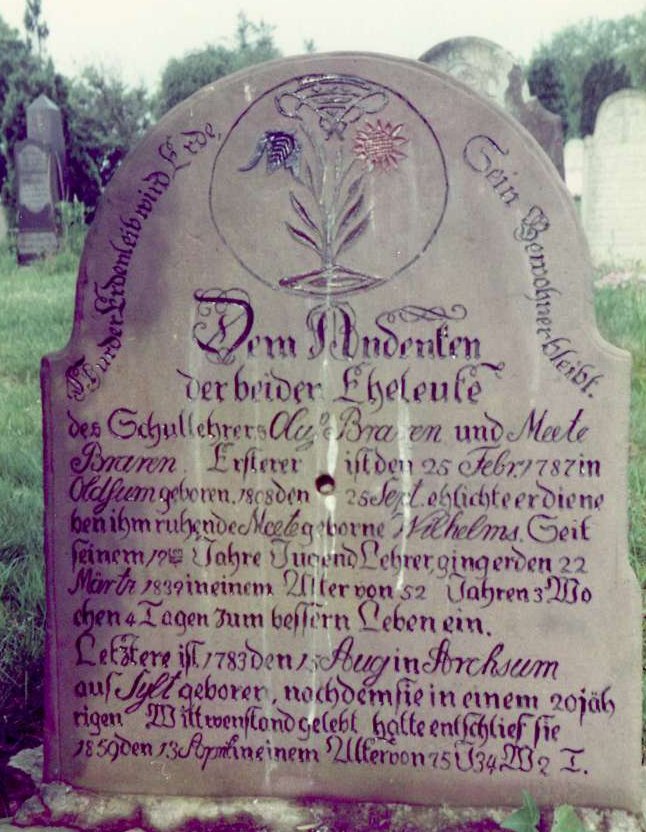 Nur der Erdenleib wird Erde,
Sein Bewohner bleibt.
Dem Andenken
der beider Eheleute
des Schullehrers Braren und Meete
Braren. Ersterer ist den 25 Febr. 1787 in
Oldsum geboren, 1808 den 25 Sept. ehlichte er die ne
ben ihm ruhende Meete geborne Wilhelms. Seit
seinem Jahre Jugend Lehrer, ging er den 22
Märtz 1839 in einem Alter von 52 Jahren 3 Wo
chen 4 Tagen zum bessern Leben ein.
Letztere ist 1783 den 15 Aug in Archsum
auf Sylt geboren, nachdem sie in einem 20jäh
rigen Wittwenstand gelebt hatte entschlief sie
1859 den 13 April in einem Alter von 75 J 34 W 2 T.